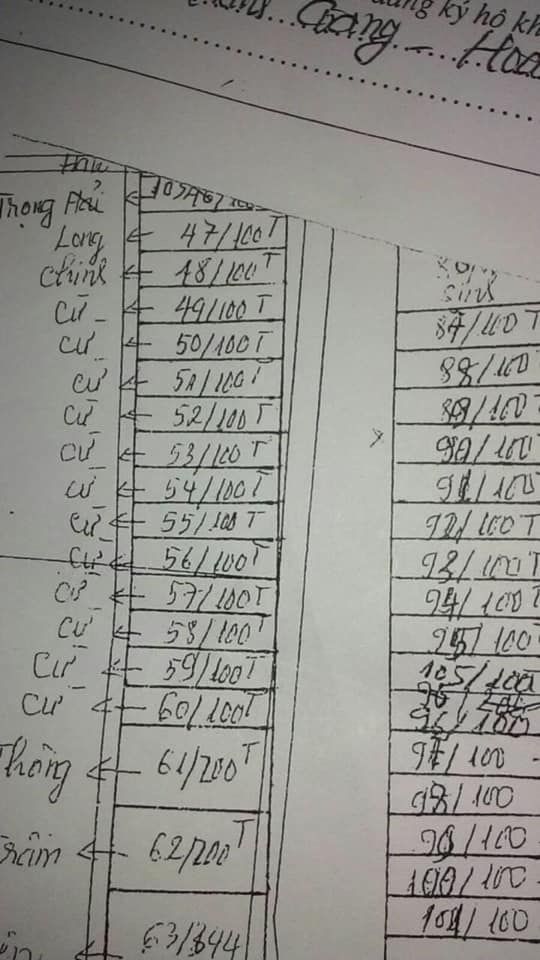 đăng ký hộ kh
Giang - Hoa
Trọng Hải ← 105A6/100
Long ← 47/100T
chính ← 48/100T
Cử ← 49/100T
Cử ← 50/100T
Cử ← 51/100T
Cử ← 52/100T
Cử ← 53/100T
Cử ← 54/100T
Cử ← 55/100T
Cử ← 56/100T
Cử ← 57/100T
Cử ← 58/100T
Cử ← 59/100T
Cử ← 60/100T
Thông ← 61/200T
Trâm ← 62/200T
← 63/344
sinh
87/100T
88/100T
89/100T
90/100T
91/100T
92/100T
93/100T
94/100T
95/100T
105/100T
96/100
97/100 -
98/100
99/100 -
100/100 -
101/100